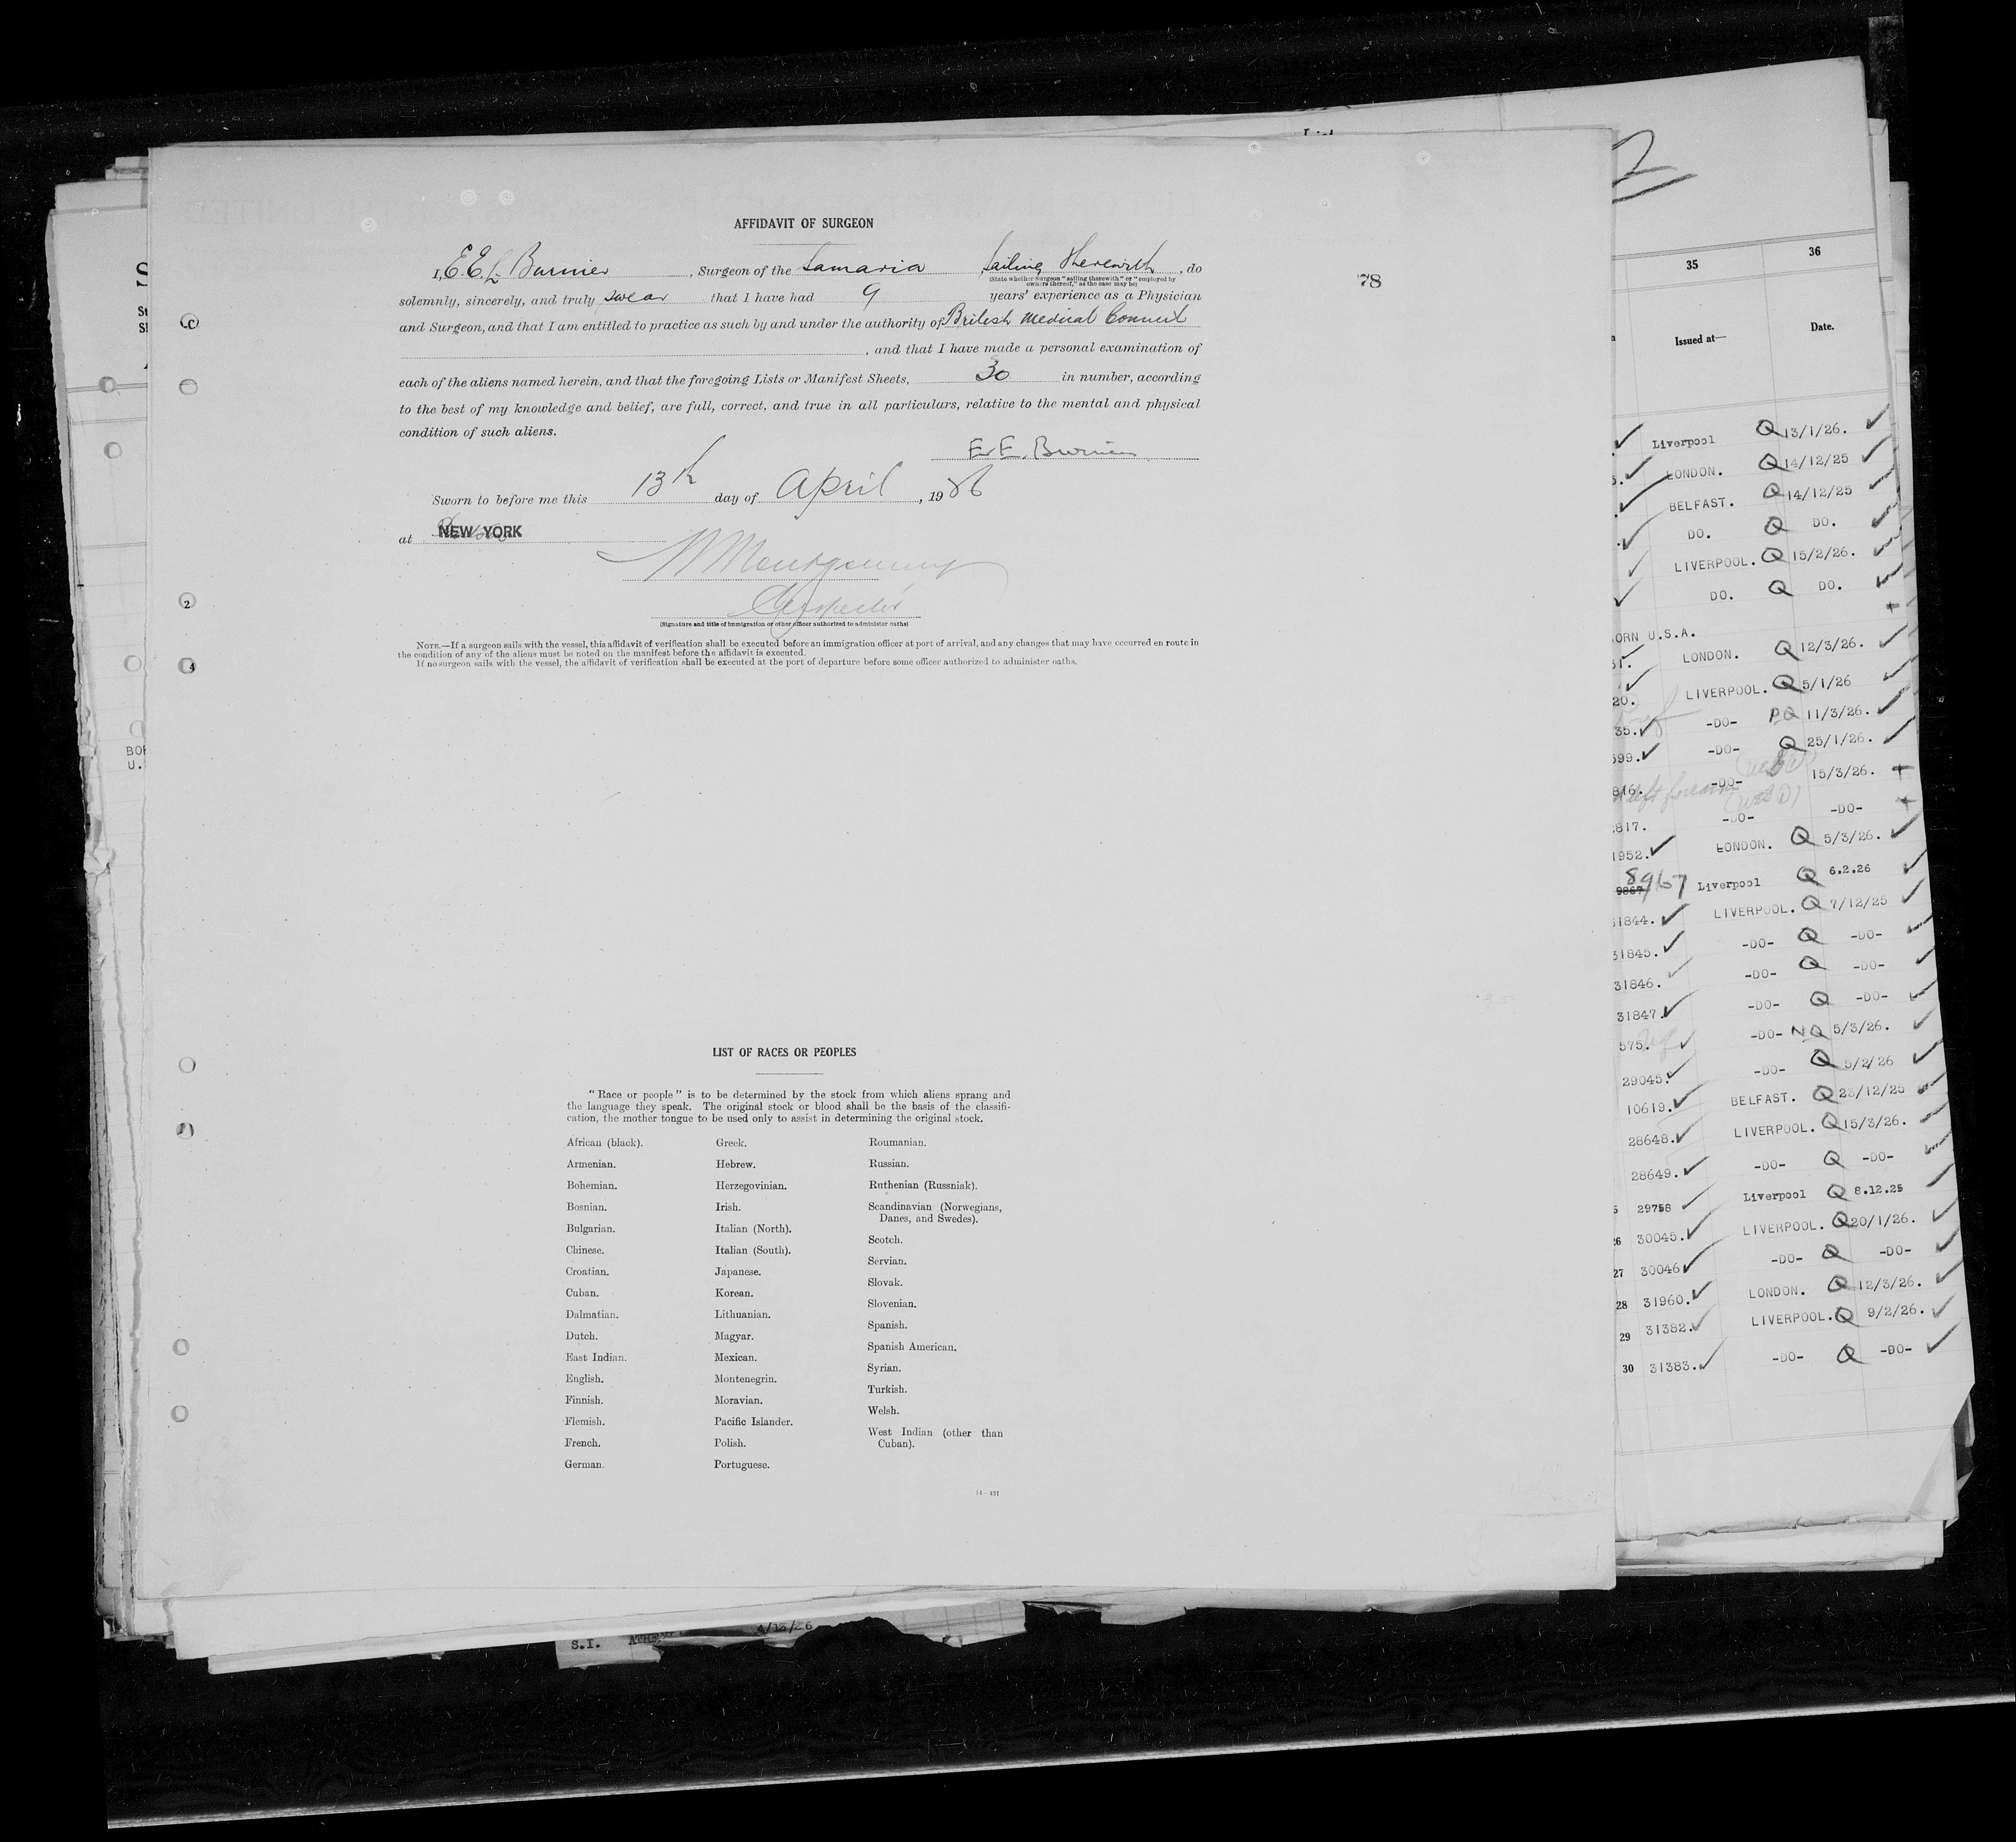 AFFIDAVIT OF SURGEON
I, E. E. L. Burnier, Surgeon of the Samaria sailing therewith, do
(State whether Surgeon "sailing therewith" or "employed by
owners thereof," as the case may be)
78
solemnly, sincerely, and truly swear that I have had 9 years' experience as a Physician
and Surgeon, and that I am entitled to practice as such by and under the authority of British Medical Council
, and that I have made a personal examination of
each of the aliens named herein, and that the foregoing Lists or Manifest Sheets, 30 in number, according
to the best of my knowledge and belief, are full, correct, and true in all particulars, relative to the mental and physical
condition of such aliens.
E. E. Burnier
Sworn to before me this 13th day of April, 1926
at NEW YORK
Montgomery
Inspector
(Signature and title of immigration or other officer authorized to administer oaths)
NOTE.—If a surgeon sails with the vessel, this affidavit of verification shall be executed before an immigration officer at port of arrival, and any changes that may have occurred en route in
the condition of any of the aliens must be noted on the manifest before the affidavit is executed.
If no surgeon sails with the vessel, the affidavit of verification shall be executed at the port of departure before some officer authorized to administer oaths.
LIST OF RACES OR PEOPLES
"Race or people" is to be determined by the stock from which aliens sprang and
the language they speak. The original stock or blood shall be the basis of the classifi-
cation, the mother tongue to be used only to assist in determining the original stock.
African (black).
Armenian.
Bohemian.
Bosnian.
Bulgarian.
Chinese.
Croatian.
Cuban.
Dalmatian.
Dutch.
East Indian.
English.
Finnish.
Flemish.
French.
German.
Greek.
Hebrew.
Herzegovinian.
Irish.
Italian (North).
Italian (South).
Japanese.
Korean.
Lithuanian.
Magyar.
Mexican.
Montenegrin.
Moravian.
Pacific Islander.
Polish.
Portuguese.
Roumanian.
Russian.
Ruthenian (Russniak).
Scandinavian (Norwegians,
Danes, and Swedes).
Scotch.
Servian.
Slovak.
Slovenian.
Spanish.
Spanish American.
Syrian.
Turkish.
Welsh.
West Indian (other than
Cuban).
14—431
35 36
Issued at— Date.
Liverpool Q 13/1/26.
LONDON. Q 14/12/25
BELFAST. Q 14/12/25
DO. Q DO.
LIVERPOOL. Q 15/2/26.
DO. Q DO.
ORN U.S.A.
31. LONDON. Q 12/3/26.
20. LIVERPOOL. Q 5/1/26
35. -DO- PQ 11/3/26.
599. -DO- Q 25/1/26.
816. -DO- 15/3/26.
left forearm
817. -DO- -DO-
1952. LONDON. Q 5/3/26.
9867 8967 Liverpool Q 6.2.26
31844. LIVERPOOL. Q 7/12/25
31845. -DO- Q -DO-
31846. -DO- Q -DO-
31847. -DO- Q -DO-
575. -DO- NQ 5/3/26.
29045. -DO- Q 5/2/26
10619. BELFAST. Q 23/12/25
28648. LIVERPOOL. Q 15/3/26.
28649. -DO- Q -DO-
29758 Liverpool Q 8.12.25
26 30045. LIVERPOOL. Q 20/1/26.
27 30046 -DO- Q -DO-
28 31960. LONDON. Q 12/3/26.
29 31382. LIVERPOOL. Q 9/2/26.
30 31383. -DO- Q -DO-
S.I. 4/13/26